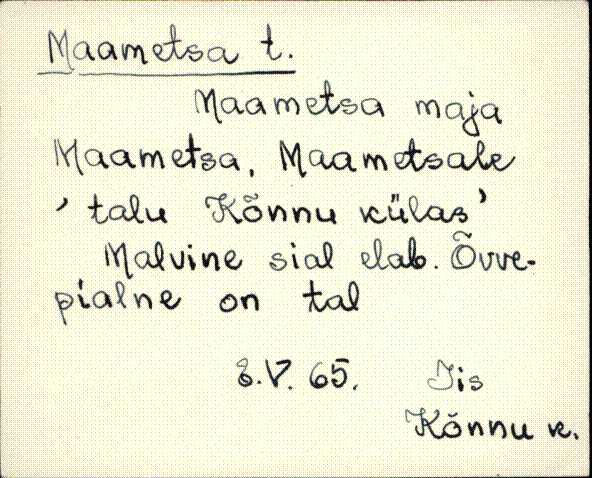 Maametsa t.
Maametsa maja
Maametsa, Maametsale
' talu Kõnnu külas'
Malvine sial elab. Õvve-
pialne on tal
8.V. 65. Jis
Kõnnu k.